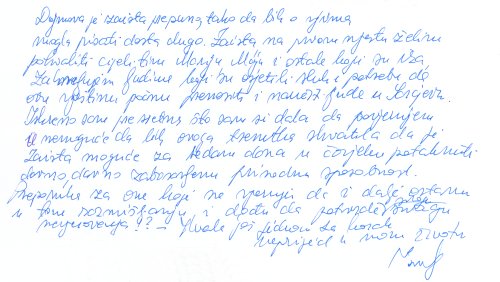 Dojmova je zaista prepuna tako da bih o njima
mogla pisati dosta dugo. Zaista na prvom mjestu želim
pohvaliti cijeli tim Mariju Maju i ostale koji su uz
Zahvaljujem ljudima koji su osjetili sluh i potrebu da
ovu vještinu počnu prenositi i nauče ljude u
Iskreno sam presretna što sam si dala da povjerujem
u nemoguće da bih ovoga trenutka shvatila da je
zaista moguće za tjedan dana u čovjeku potaknuti
davno, davno zaboravljenu prirodnu sposobnost.
Preporuka za one koji ne vjeruju da i dalje ostanu
u tom razmišljanju i dođu da potvrde svoju
nevjerovanja?? – Hvala još jednom za korak
naprijed u mom životu